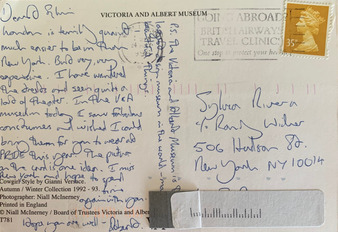 VICTORIA AND ALBERT MUSEUM
Dearest
London is terribly grand
much easier to be in than
New York. But very, very
expensive. I have wandered
the streets and seen quite a
lot of theater. In the V&A
museum today I saw fabulous
costumes and wished I could
bring them for you to wear at
PRIDE this year. The picture
on the card is one idea. I miss
New York and hope to spend
time
again with you.
Hope you are well
P.S. The Victoria and Albert Museum is
museum in the world
things
GOING ABROAD?
BRITISH AIRWAYS
TRAVEL CLINICS
One stop to protect your health
35
Sylvia Rivera
℅ Randy Wicker
506 Hudson St.
New York NY 10014
Cowgirl Style by Gianni Versace.
Autumn / Winter Collection 1992 - 93.
Photographer: Niall McInerney
Printed in England
© Niall McInerney / Board of Trustees Victoria and Albert
T781